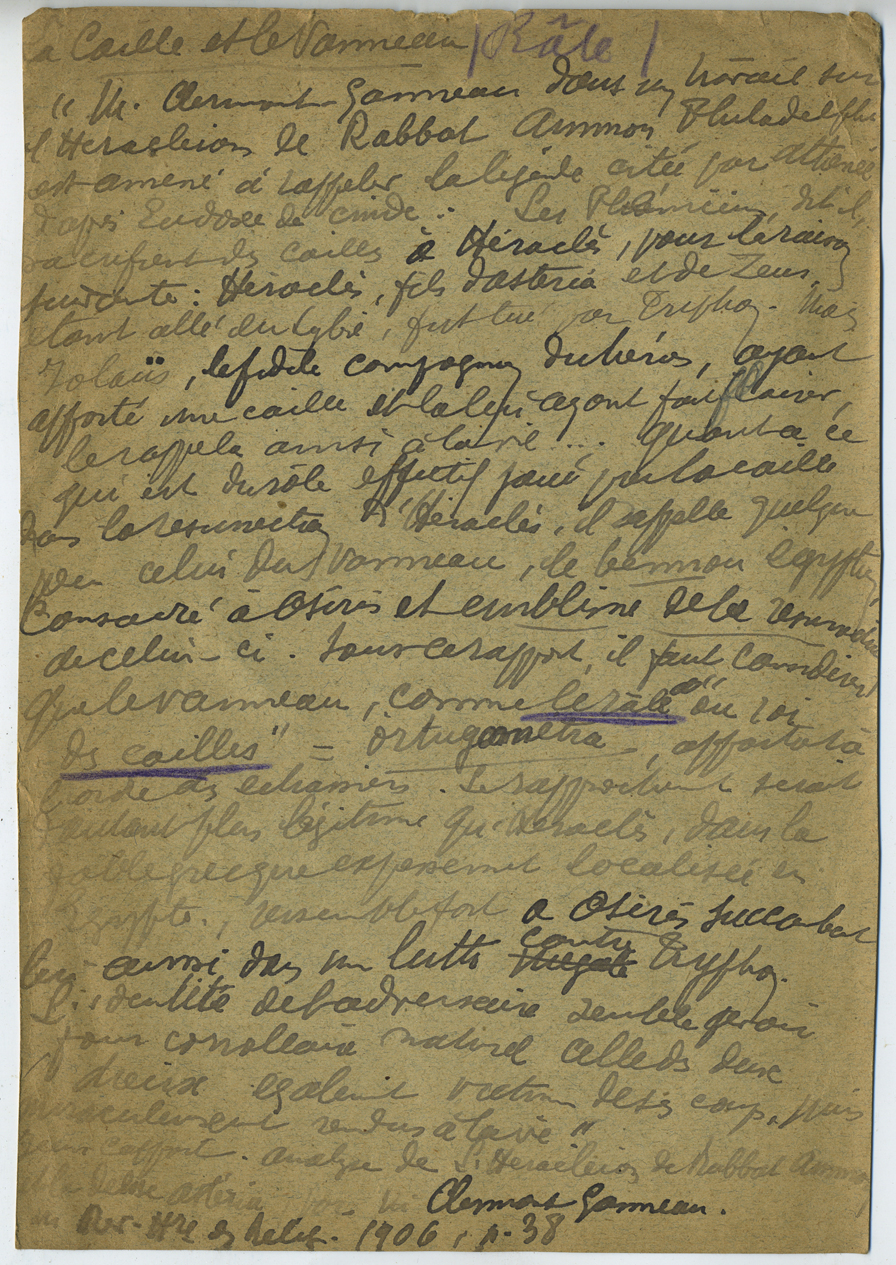 La Caille et le Vanneau / Râle /
" M. Clermont-Ganneau dans un travail sur
l'Heracleion de Rabbat Ammon Philadelphie
est amené à rappeler la légende citée par Athénée
d'après Eudoxe de Cnide : Les Phéniciens, dit-il,
sacrifient des cailles à Héraclès, pour la raison
suivante : Héraclès, fils d'Asteria et de Zeus,
étant allé en Lybie, fut tué par Tryphon. Mais
Iolaüs, le fidèle compagnon du héros, ayant
apporté une caille et la lui ayant fait flairer,
le rappela ainsi à la vie .... Quant à ce
qui est du rôle effectif joué par la caille
dans la resurrection d'Héraclès, il rappelle quelque
peu celui du vanneau, le bennou égyptien
Consacré à Osiris et emblème de la résurrection
de celui-ci. Sous ce rapport, il faut considérer
que le vanneau, comme le râle "ou roi
des cailles" = ortugometra, appartient à
l'ordre des échassiers. Le rapprochement serait
d'autant plus légitime qu'Héraclès, dans la
fable grecque expressément localisée en
Egypte, ressemble fort à Osiris succombant
lui aussi dans une lutte contre Tryphon.
L'identité de l'adversaire semble avoir
pour corollaire naturel celle des deux
dieux également victimes de ses coups, puis
miraculeusement rendus à la vie "
analyse de L'Heracleion de Rabbat Ammon
et la déesse astéria par M. Clermont Ganneau.
in Rev. Hre des Relig. 1906, p. 38